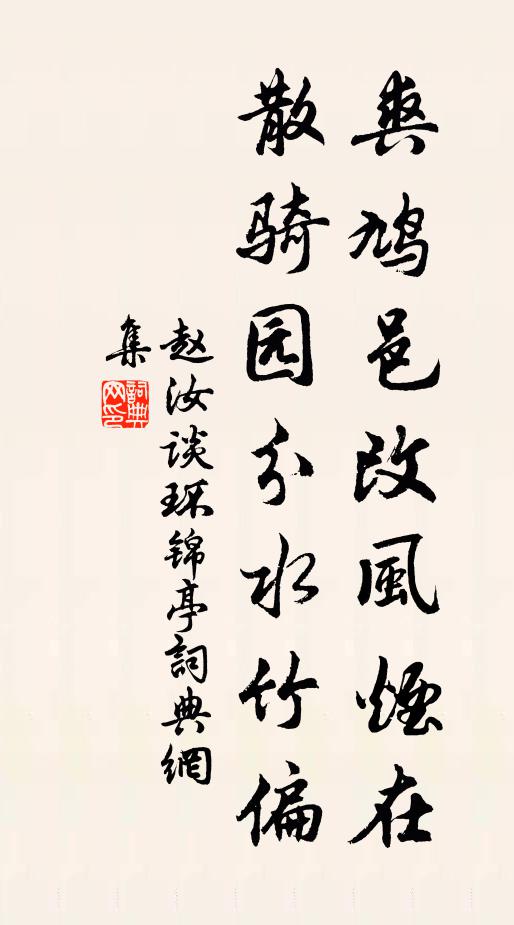 爽鸠邑改風煙在
散骑园分水竹偏
赵汝谈环锦亭詞典網
集
詞典网印